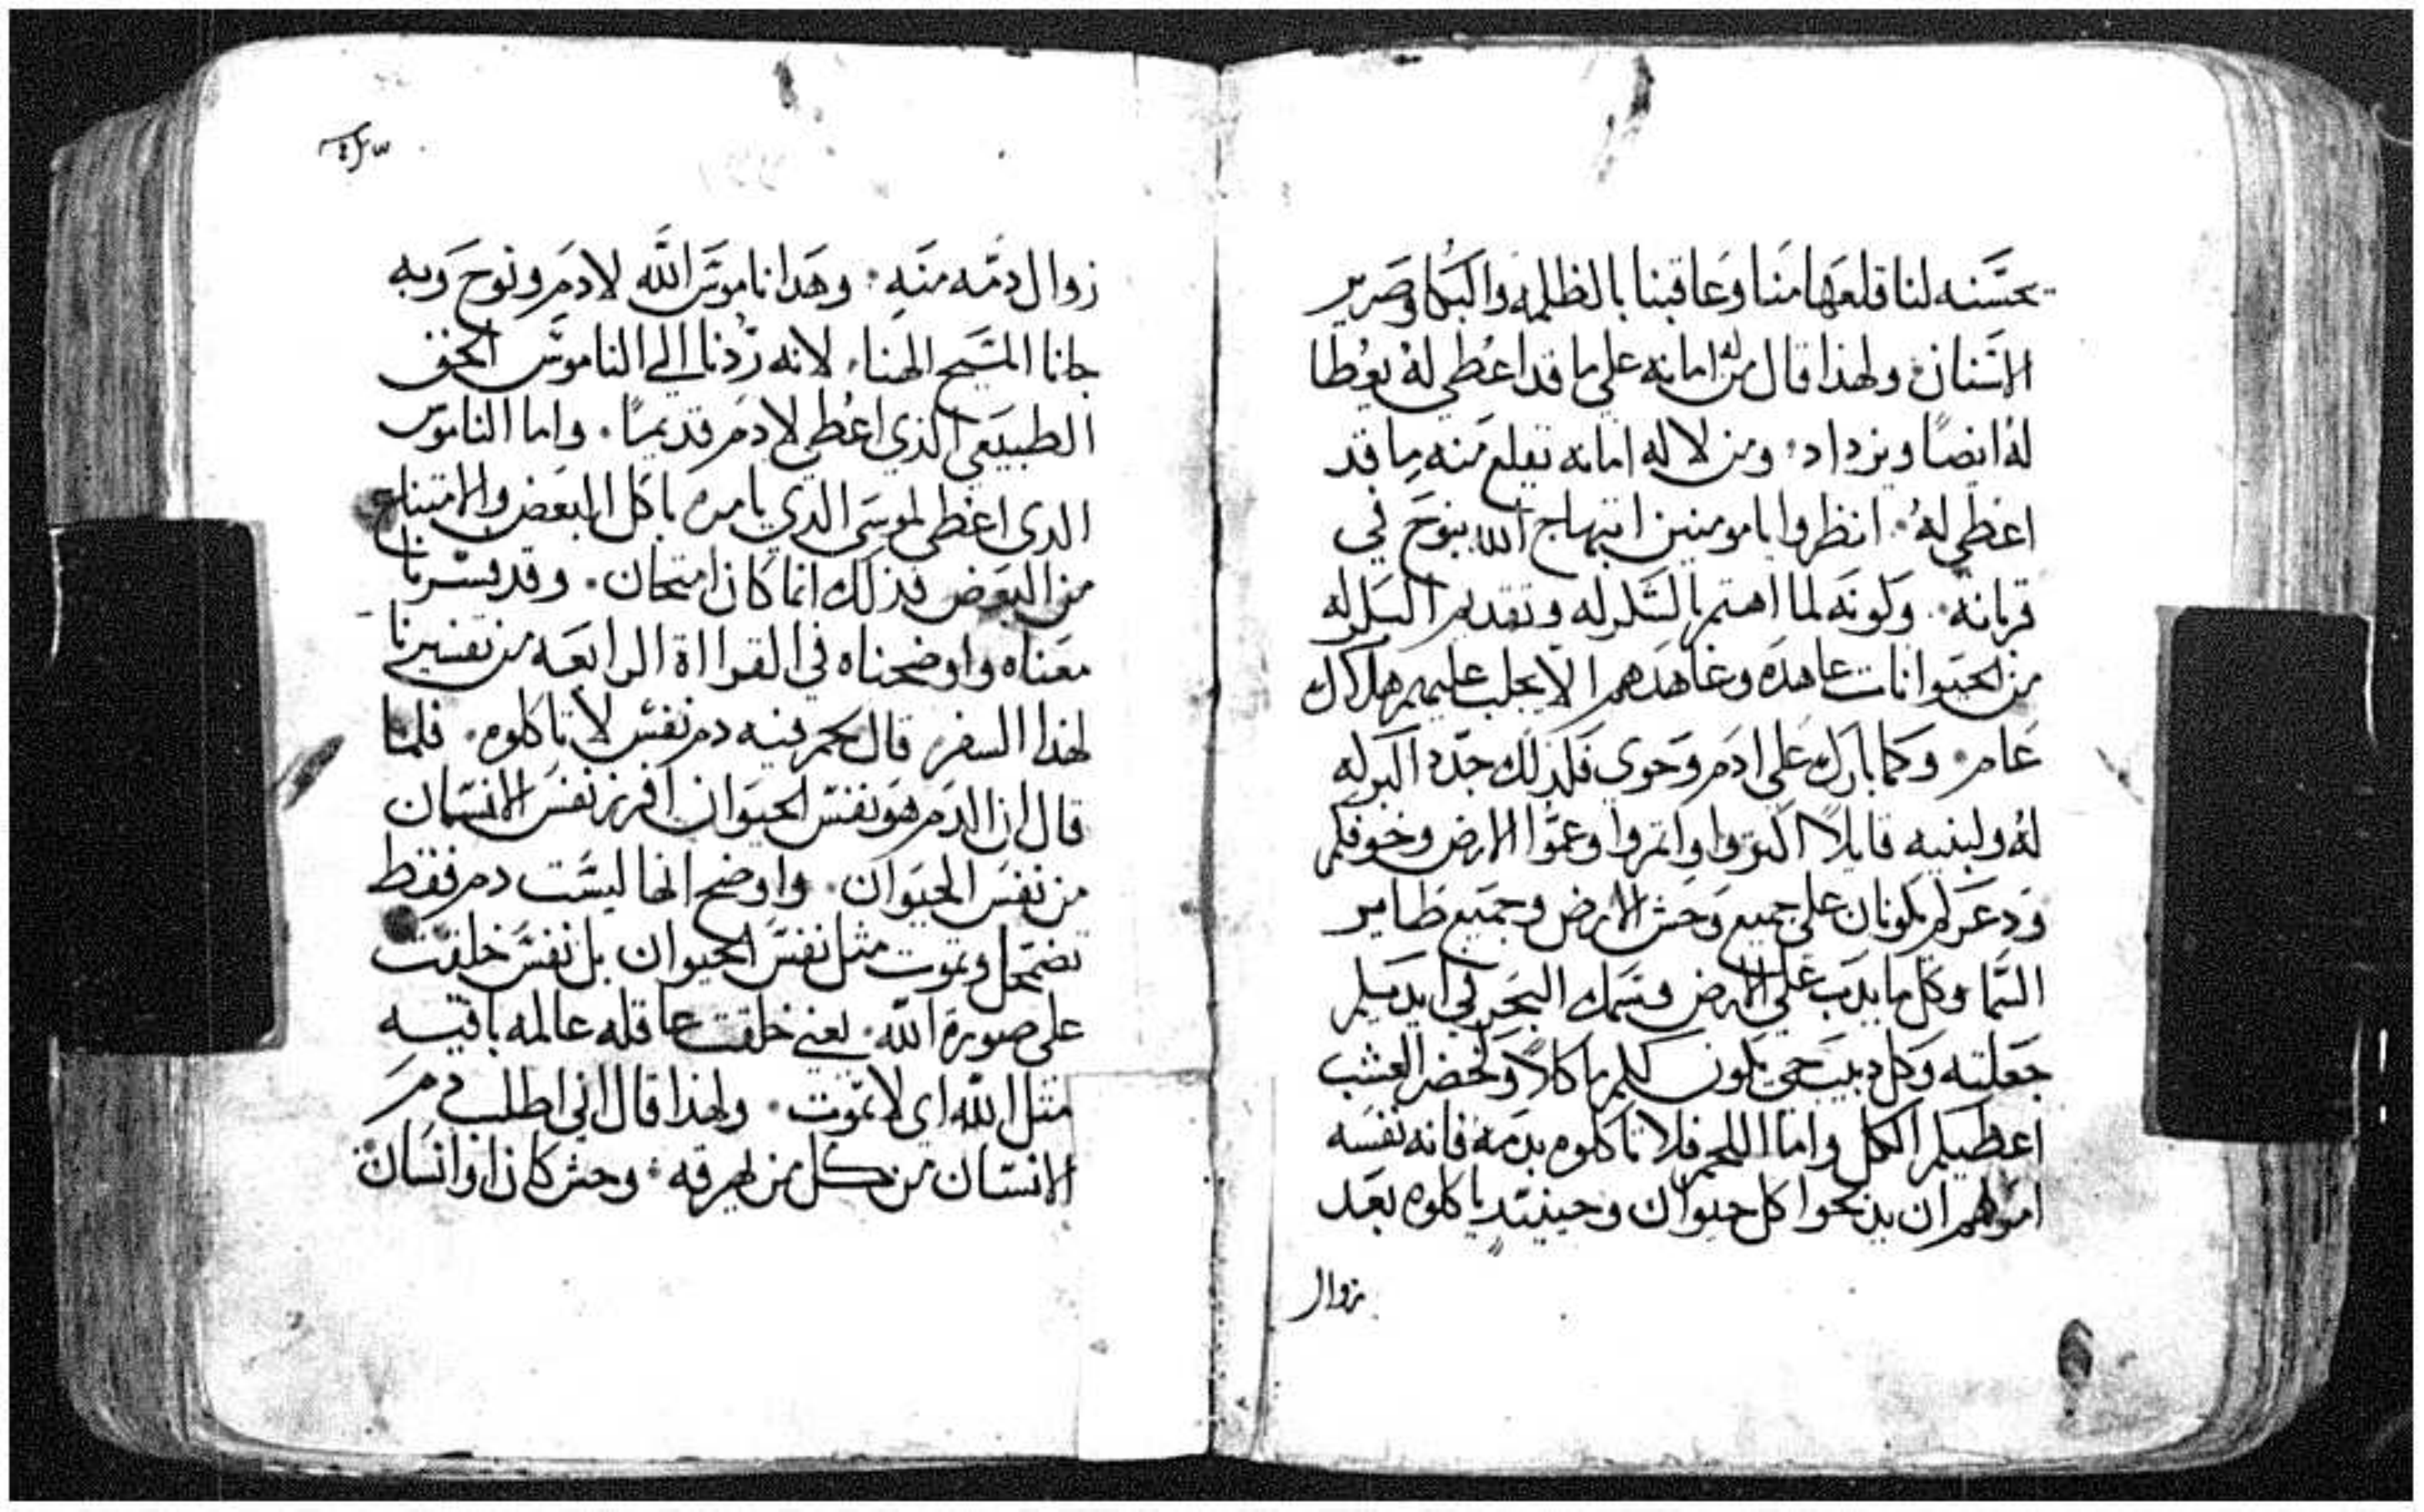 يحسنه لنا قلعها منا وعاقبنا بالظلمه والبكا وصرير
الاسنان ولهذا قال من له امانه على ما قد اعطي له يعطا
له ايضا ويزداد ومن لا له امانه تقلع منه ما قد
اعطي له انظروا يا مومنين ابتهاج الله بنوح في
قربانه وكونه لما اهتم بالشكر له وتقديم البكر له
من الحيوانات عاهده وعاهدهم الا يجلب عليهم هلاك
عام وكما بارك على ادم وحوى فكذلك جدد البركه
له ولبنيه قايلا اكتروا واتمروا وعموا الارض وخوفكم
ودعركم يكونان على جميع وحش الارض وجميع طاير
السما وكل ما يدب على الارض وسمك البحر في ايديكم
جعلته وكل دبيب حي يكون لكم ماكلا وكخضر العشب
اعطيكم الكل واما اللحم فلا تاكلوه بدمه فانه نفسه
امرهم ان يدبحوا كل حيوان وحينيد ياكلوه بعد
زوال
زوال دمه منه وهدا ناموس الله لادم ونوح وبه
جانا المسيح الهنا لانه ردنا الي الناموس الحق
الطبيعي الذي اعطي لادم قديما واما الناموس
الدى اعطى لموسى الدي يامره باكل البعض والامتناع
من البعض فذلك انما كان امتحان وقد فسرنا
معناه واوضحناه في القرااة الرابعه من تفسيرنا
لهذا السفر قال لحم فيه دم نفس لا تاكلوه فلما
قال ان الدم هو نفس الحيوان افرز نفس الانسان
من نفس الحيوان واوضح انها ليست دم فقط
تضمحل وتموت مثل نفس الحيوان بل نفس خلقت
على صورة الله يعني خلقت عاقله عالمه باقيه
مثل الله اى لا تموت ولهذا قال اني اطلب دم
الانسان من كل من يهرقه وحش كان او انسان